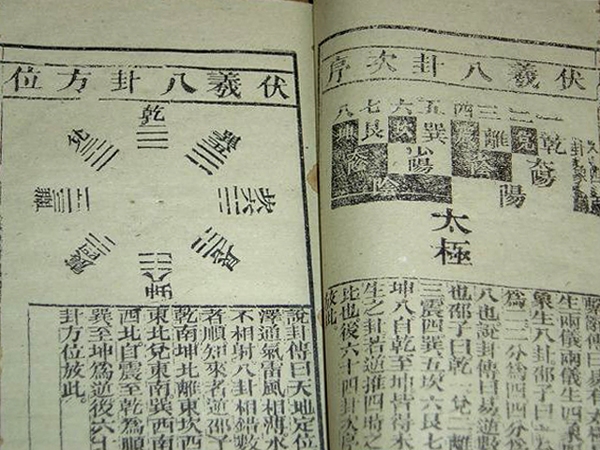 伏羲八卦次序
一二三四五六七八
乾兌離震巽坎艮坤
太陽
少陽
陽
陰
太極
繫辭傳曰易有太
生兩儀兩儀生四
象生八卦邵子曰一
為二二分為四四分
八也說卦傳曰易逆數
也邵子曰乾一兌二離
三震四巽五坎六艮七
坤八自乾至坤皆得未
生之卦若逆推四時之
比也後六十四卦次序
放此
伏羲八卦方位
乾
兌
離
震
坤
艮
坎
巽
說卦傳曰天地定位
澤通氣雷風相薄水
不相射八卦相錯數
者順知來者逆邵子
乾南坤北離東坎西
東北兌東南巽西南
西北自震至乾為順
巽至坤為逆後六十
卦方位放此。